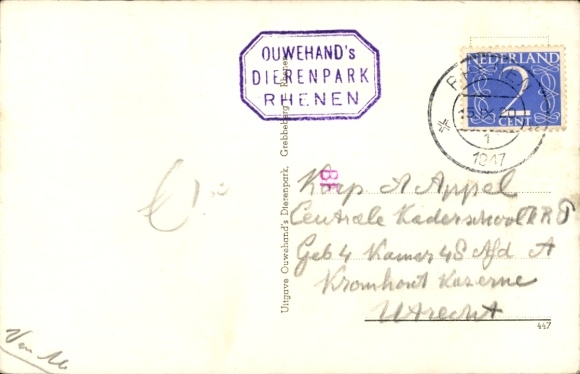 OUWEHAND's
DIERENPARK
RHENEN
NEDERLAND
2
CENT
1
1947
Uitgave Ouwehand's Dierenpark, Grebbeberg, Rhenen
BF
Korp A Appel
Centrale Kaderschool
Geb 4 Kamer 48 Afd A
Kromhout Kazerne
Utrecht
447
Van